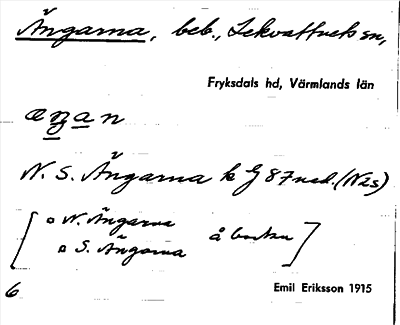 Ängarna, beb., Lekvattnets sn,
Fryksdals hd, Värmlands län
æŋan
N. S. Ängarna k GJ 87 ned. (N2s)
[ o N. Ängarna å bortan ]
o S. Ängarna
6 Emil Eriksson 1915